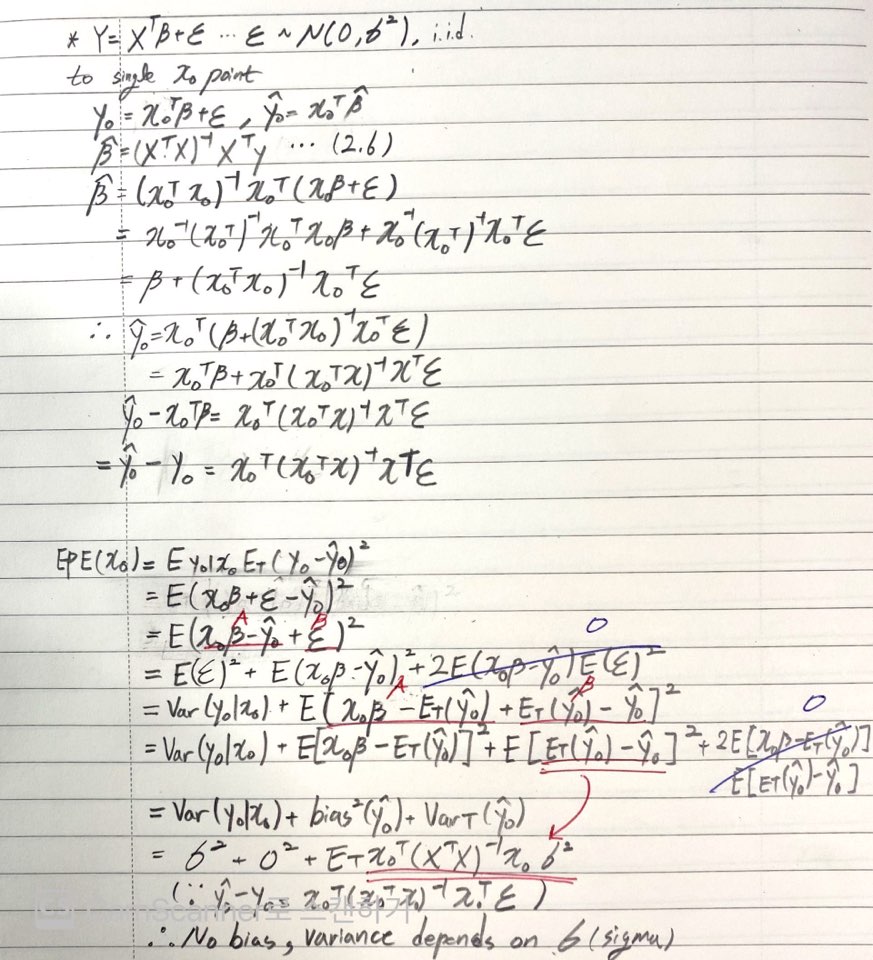 * Y = X^Tβ+ε ··· ε ~ N(0, б²), i.i.d.
to single x₀ point
y₀ = x₀^Tβ+ε , ŷ₀ = x₀^T β̂
β̂ = (X^TX)^-1 X^Ty ··· (2.6)
β̂ = (x₀^T x₀)^-1 x₀^T (x₀β+ε)
= x₀^-1(x₀^T)^-1 x₀^T x₀β + x₀^-1(x₀^T)^-1 x₀^T ε
= β + (x₀^T x₀)^-1 x₀^T ε
∴ ŷ₀ = x₀^T (β+(x₀^T x₀)^-1 x₀^T ε)
= x₀^Tβ + x₀^T (x₀^T x)^-1 x^T ε
ŷ₀ - x₀^Tβ = x₀^T (x₀^T x)^-1 x^T ε
= ŷ₀ - y₀ = x₀^T (x₀^T x)^-1 x^T ε
EPE(x₀) = E y₀|x₀ E_T (y₀ - ŷ₀)²
= E(x₀β + ε - ŷ₀)²
A B
= E(x₀β - ŷ₀ + ε)²
0
= E(ε)² + E(x₀β - ŷ₀)² + 2E(x₀β - ŷ₀)E(ε)²
A B
= Var(y₀|x₀) + E[x₀β - E_T(ŷ₀) + E_T(ŷ₀) - ŷ₀]²
0
= Var(y₀|x₀) + E[x₀β - E_T(ŷ₀)]² + E[E_T(ŷ₀) - ŷ₀]² + 2E[x₀β - E_T(ŷ₀)]
E[E_T(ŷ₀) - ŷ₀]
= Var(y₀|x₀) + bias²(ŷ₀) + Var_T(ŷ₀)
= б² + 0² + E_T x₀^T (X^TX)^-1 x₀ б²
(∵ ŷ₀ - y₀ = x₀^T (x₀^T x₀)^-1 x₀^T ε )
∴ No bias, variance depends on б (sigma)